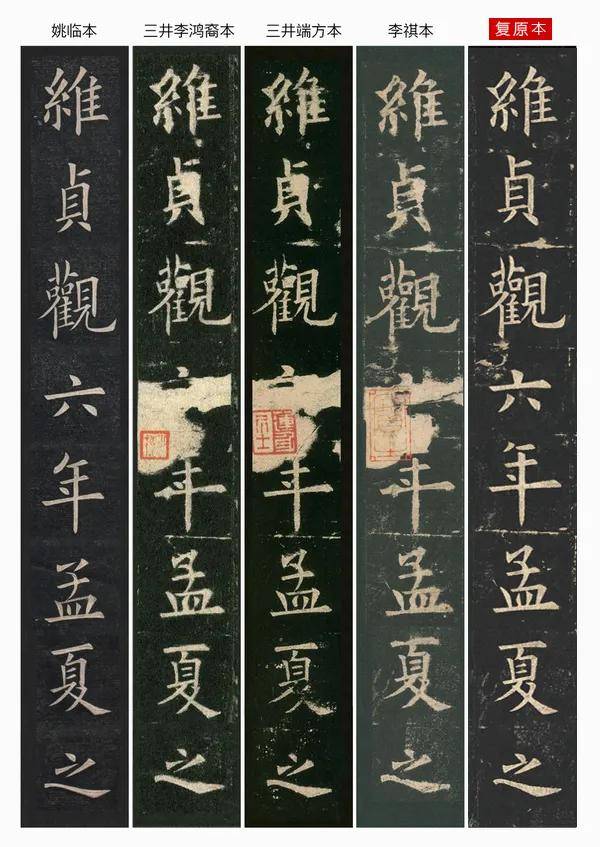 姚临本 三井李鸿裔本 三井端方本 李祺本 复原本
維貞觀六年孟夏之
維貞觀年孟夏之
維貞觀年孟夏之
維貞觀年孟夏之
維貞觀六年孟夏之